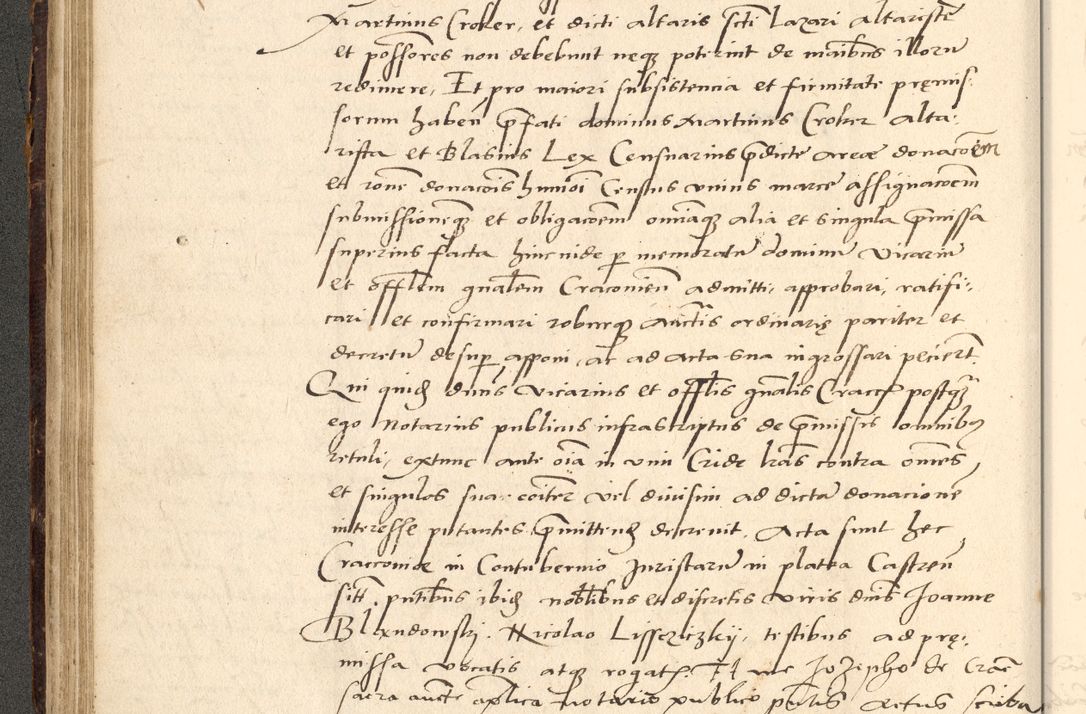 Martinus Croker, et dicti altaris scti Lazari altaristę
et possores non debebunt neqz poterint de maibus illoru
redimere, Et pro maiori subsistencia et firmitate pręmis-
sorum haben pfati dominus Martinus Croker alta-
rista et Blasius Lex Censuarius pdicte areæ donacoem
et rone donacois humoi Census unius marce assignacoem
submissionemqz et obligacoem omiaqz alia et singula pmissa
superius facta hincinde p memoratu dominu Vicariu
et offlem gnalem Cracovien admitti, approbari, ratifi-
cari et confirmari roburqz auctis ordinarię pariter et
decretu desup apponi, ac ad acta sua ingrossari peciert.
Qui quid dnus Vicarius et offlis gnalis Cracc postqz
ego Notarius publicus infrascriptus de pmissis omnibus
retuli, extunc ante oia in vim Cride lras contra omes
et singulos sua coiter vel divisim ad dicta donacione
interesse putantes pmittend decrevit, Acta sunt hec
Cracoviæ in Contubernio Juristaru in platea Castren
sitt, pntibus ibid noblibus et discretis viris dnis Joanne
Blxndowskj, Nicolao Lisseziczkij, testibus ad prę-
missa vocatis atqz rogatis. Et me Jozepho de Crac
sacra aucte aplica notario publico pntis actus scriba